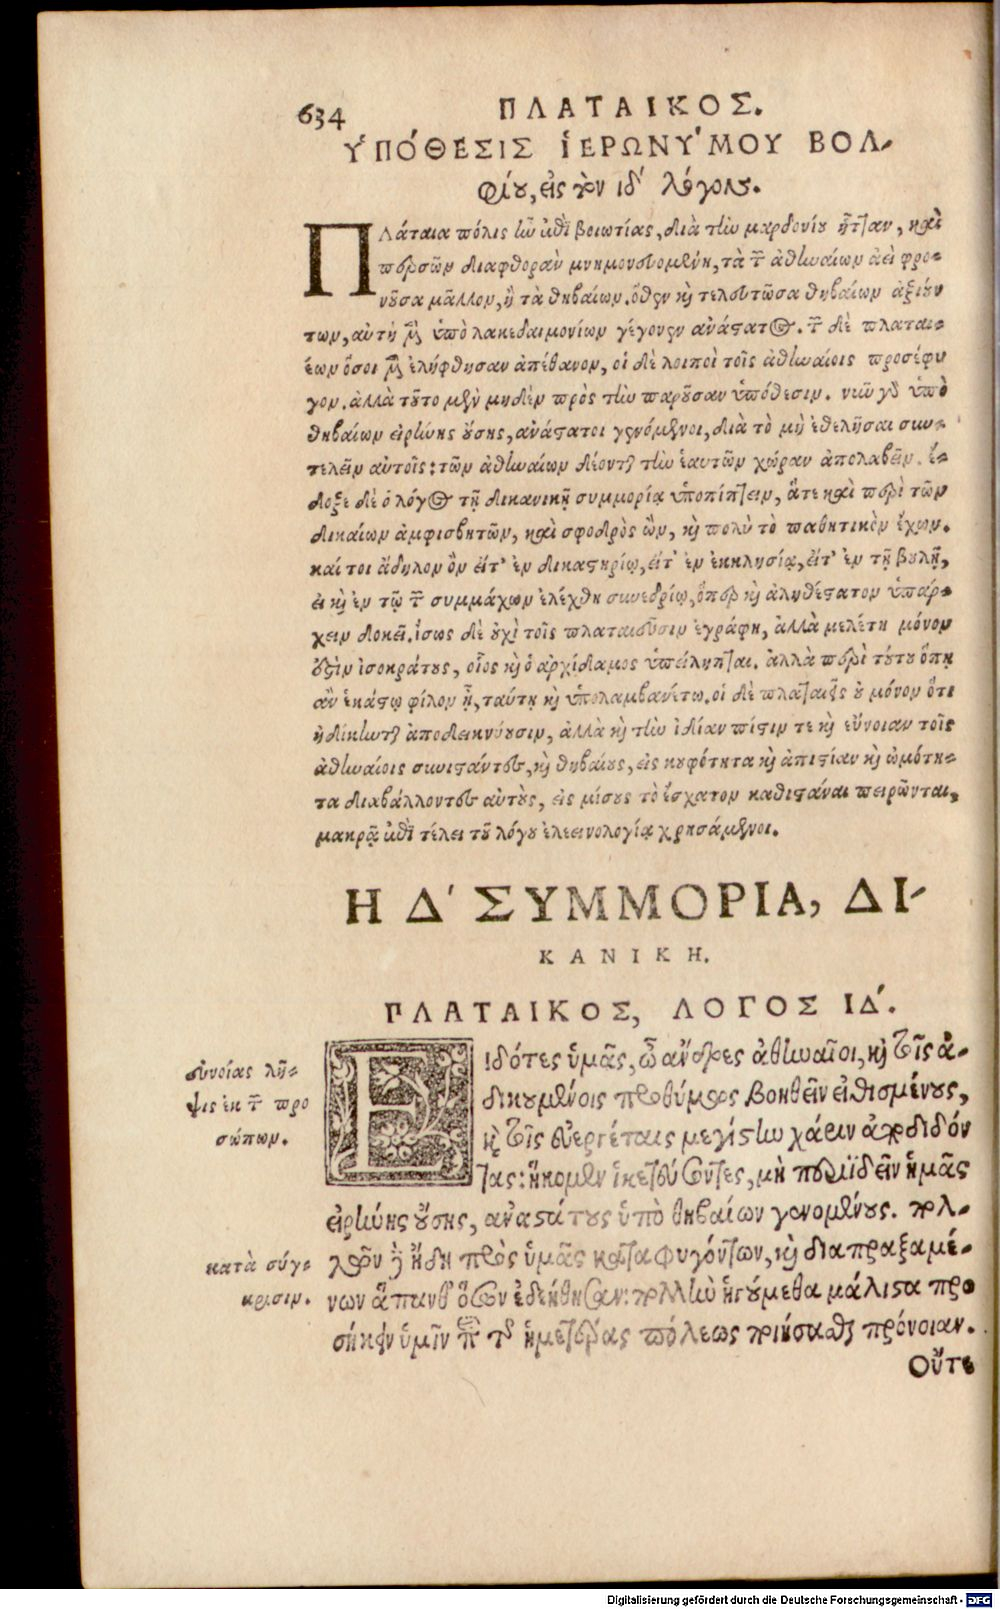 634
ΠΛΑΤΑΙΚΟΣ.
ὙΠΌΘΕΣΙΣ ἹΕΡΩΝΎΜΟΥ ΒΟΛ-
φίου, εἰς τὸν ιδ΄ λόγον.
Πλάταια πόλις ἦν ἐπὶ βοιωτίας, διὰ τὴν μαρδονίου ἧτταν, καὶ
περσῶν διαφθορὰν μνημονευομένη, τὰ τῶν ἀθηναίων ἀεὶ φρο-
νοῦσα μᾶλλον, ἢ τὰ θηβαίων. ὅθεν καὶ τελευτῶσα θηβαίων ἀξιούν
των, αὐτὴ μὲν ὑπὸ λακεδαιμονίων γέγονεν ἀνάστατος. τῶν δὲ πλαται-
έων ὅσοι μὲν ἐλήφθησαν ἀπέθανον, οἱ δὲ λοιποὶ τοῖς ἀθηναίοις προσέφυ
γον. ἀλλὰ τοῦτο μὲν μηδὲν πρὸς τὴν παροῦσαν ὑπόθεσιν. νῦν γὰρ ὑπὸ
θηβαίων εἰρήνης οὔσης, ἀνάστατοι γενόμενοι, διὰ τὸ μὴ ἐθελῆσαι συν-
τελεῖν αὐτοῖς: τῶν ἀθηναίων δέονται τὴν ἑαυτῶν χώραν ἀπολαβεῖν. ἔ-
δοξε δὲ ὁ λόγος τῇ δικανικῇ συμμορίᾳ ὑποπίπτειν, ἅτε καὶ περὶ τῶν
δικαίων ἀμφισβητῶν, καὶ σφοδρὸς ὢν, καὶ πολὺ τὸ παθητικὸν ἔχων.
καί τοι ἄδηλον ὂν εἴτ' ἐν δικαστηρίῳ, εἴτ' ἐν ἐκκλησίᾳ, εἴτ' ἐν τῇ βουλῇ,
εἰ καὶ ἐν τῷ τῶν συμμάχων ἐλέχθη συνεδρίῳ, ὅπερ καὶ ἀληθέστατον ὑπάρ-
χειν δοκεῖ. ἴσως δὲ οὐχὶ τοῖς πλαταιεῦσιν ἐγράφη, ἀλλὰ μελέτη μόνον
ἐστὶν ἰσοκράτους, οἷος καὶ ὁ ἀρχίδαμος ὑπείληπται. ἀλλὰ περὶ τούτου ὅπῃ
ἂν ἑκάστῳ φίλον ᾖ, ταύτῃ καὶ ὑπολαμβανέτω. οἱ δὲ πλαταιεῖς οὐ μόνον ὅτι
ἠδίκηνται ἀποδεικνύουσιν, ἀλλὰ καὶ τὴν ἰδίαν πίστιν τε καὶ εὔνοιαν τοῖς
ἀθηναίοις συνιστάντες, καὶ θηβαίους, εἰς κουφότητα καὶ ἀπιστίαν καὶ ὠμότη-
τα διαβάλλοντες αὐτοὺς, εἰς μίσους τὸ ἔσχατον καθιστάναι πειρῶνται,
μακρᾷ ἐπὶ τέλει τοῦ λόγου ἐλεεινολογίᾳ χρησάμενοι.
Η Δ' ΣΥΜΜΟΡΙΑ, ΔΙ-
ΚΑΝΙΚΗ.
ΠΛΑΤΑΙΚΟΣ, ΛΟΓΟΣ ΙΔ΄.
εὐνοίας λῆ-
ψις ἐκ τῶν προ
σώπων.
Εἰδότες ὑμᾶς, ὦ ἄνδρες ἀθηναῖοι, καὶ τοῖς ἀ-
δικουμένοις προθύμως βοηθεῖν εἰθισμένους,
καὶ τοῖς εὐεργέταις μεγίστην χάριν ἀποδιδόν
τας: ἥκομεν ἱκετεύσοντες, μὴ περιϊδεῖν ἡμᾶς
εἰρήνης οὔσης, ἀναστάτους ὑπὸ θηβαίων γενομένους. πολ-
κατὰ σύγ-
κρισιν.
λῶν δ' ἤδη πρὸς ὑμᾶς καταφυγόντων, καὶ διαπραξαμέ-
νων ἅπανθ' ὅσων ἐδεήθησαν: πολλὴν ἡγούμεθα μάλιστα προ
σήκειν ὑμῖν περὶ τῆς ἡμετέρας πόλεως ποιήσασθαι πρόνοιαν.
Οὔτε
Digitalisierung gefördert durch die Deutsche Forschungsgemeinschaft - DFG